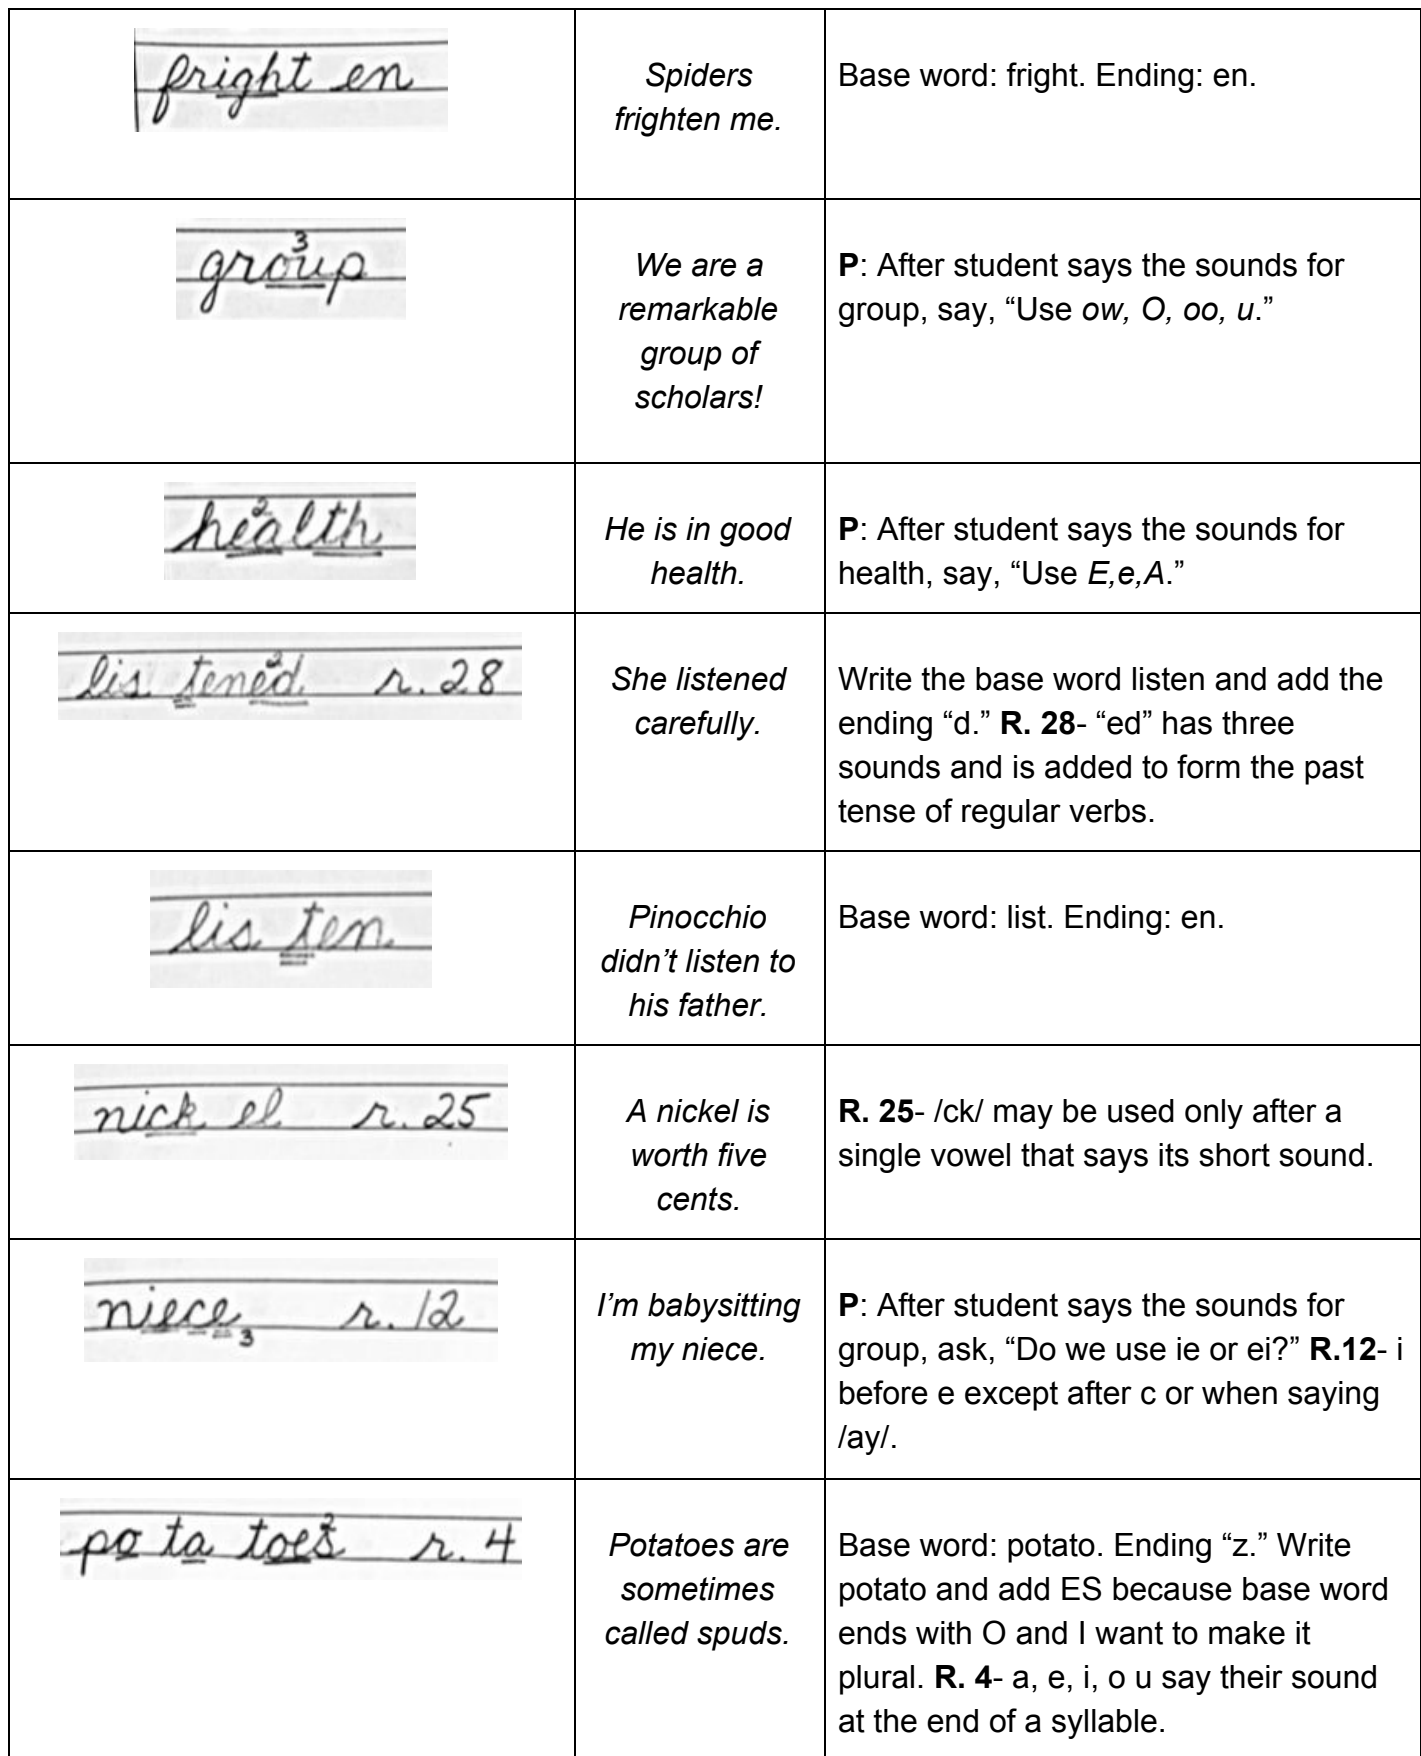 fright en
Spiders
frighten me.
Base word: fright. Ending: en.
3
group
We are a
remarkable
group of
scholars!
P: After student says the sounds for
group, say, “Use ow, O, oo, u.”
2
health
He is in good
health.
P: After student says the sounds for
health, say, “Use E,e,A.”
2
lis tened r. 28
She listened
carefully.
Write the base word listen and add the
ending “d.” R. 28- “ed” has three
sounds and is added to form the past
tense of regular verbs.
lis ten
Pinocchio
didn’t listen to
his father.
Base word: list. Ending: en.
nick el r. 25
A nickel is
worth five
cents.
R. 25- /ck/ may be used only after a
single vowel that says its short sound.
niece r. 12
3
I’m babysitting
my niece.
P: After student says the sounds for
group, ask, “Do we use ie or ei?” R.12- i
before e except after c or when saying
/ay/.
2
po ta toes r. 4
Potatoes are
sometimes
called spuds.
Base word: potato. Ending “z.” Write
potato and add ES because base word
ends with O and I want to make it
plural. R. 4- a, e, i, o u say their sound
at the end of a syllable.